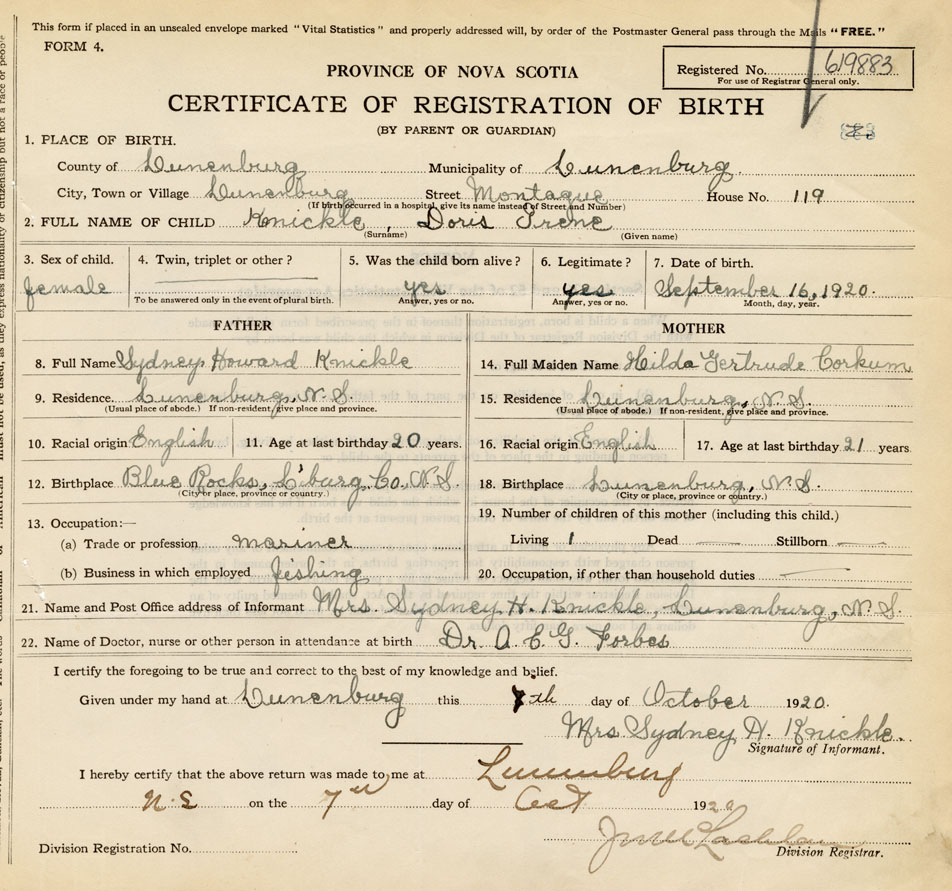 This form if placed in an unsealed envelope marked "Vital Statistics" and properly addressed will, by order of the Postmaster General pass through the Mails "FREE."
FORM 4.
Registered No. 619883
For use of Registrar General only.
PROVINCE OF NOVA SCOTIA
CERTIFICATE OF REGISTRATION OF BIRTH
(BY PARENT OR GUARDIAN)
1. PLACE OF BIRTH.
County of Lunenburg Municipality of Lunenburg
City, Town or Village Lunenburg Street Montague House No. 119
(If birth occurred in a hospital, give its name instead of Street and Number)
2. FULL NAME OF CHILD Knickle, Doris Irene
(Surname) (Given name)
3. Sex of child. 4. Twin, triplet or other? 5. Was the child born alive? 6. Legitimate? 7. Date of birth.
female yes yes September 16, 1920.
To be answered only in the event of plural birth. Answer, yes or no. Answer, yes or no. Month, day, year.
FATHER MOTHER
8. Full Name Sydney Howard Knickle 14. Full Maiden Name Hilda Gertrude Corkum
9. Residence. Lunenburg, N.S. 15. Residence Lunenburg, N.S.
(Usual place of abode.) If non-resident, give place and province. (Usual place of abode.) If non-resident, give place and province.
10. Racial origin English 11. Age at last birthday 20 years. 16. Racial origin English 17. Age at last birthday 21 years
12. Birthplace Blue Rocks, L'burg. Co. N.S. 18. Birthplace Lunenburg, N.S.
(City or place, province or country.) (City or place, province or country.)
13. Occupation:— 19. Number of children of this mother (including this child.)
(a) Trade or profession mariner Living 1 Dead Stillborn
(b) Business in which employed fishing 20. Occupation, if other than household duties
21. Name and Post Office address of Informant Mrs. Sydney H. Knickle, Lunenburg, N.S.
22. Name of Doctor, nurse or other person in attendance at birth Dr. A. E. G. Forbes
I certify the foregoing to be true and correct to the best of my knowledge and belief.
Given under my hand at Lunenburg this 7th day of October 1920.
Mrs. Sydney H. Knickle.
Signature of Informant.
I hereby certify that the above return was made to me at Lunenburg
N.S on the 7th day of Oct 1920
Division Registration No.
Division Registrar.